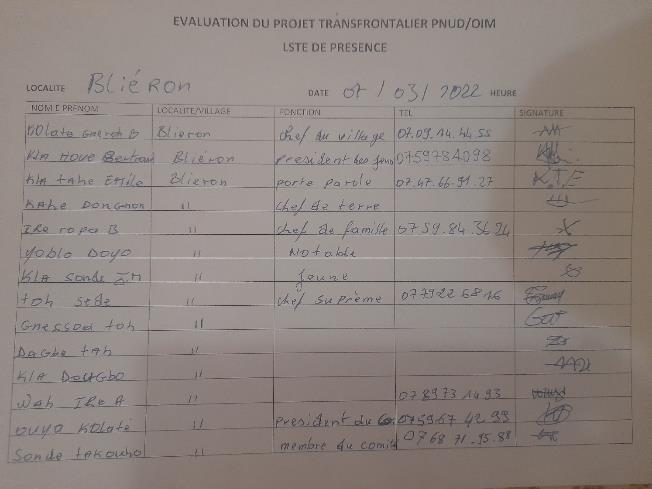 EVALUATION DU PROJET TRANSFRONTALIER PNUD/OIM
LSTE DE PRESENCE
LOCALITE BLIÉRON DATE 07/03/2022 HEURE
NOM E PRENOM LOCALITE/VILLAGE FONCTION TEL SIGNATURE
Kolate B Blieron chef du village 07.09.14.44.55
KLA Houe Bertrand Bliéron President des 0759784098
KLA take Emile Blieron porte parole 07.47.66.91.27 K.T.E
Kahe Dongnon " chef de terre
IRe ropa B " chef de famille 0759.84.3624
Yoblo Doyo " Notable
KLA Sonde " Jeune
toh sede " chef suprême 077922 6816
Gnessoa toh "
Dagbe tah "
KLA Dougbo "
Wah IRe A " 0789731493
Ouya Kolaté " President du 07596742 99
Sonde takouho " membre du comité 0768 71.95.88